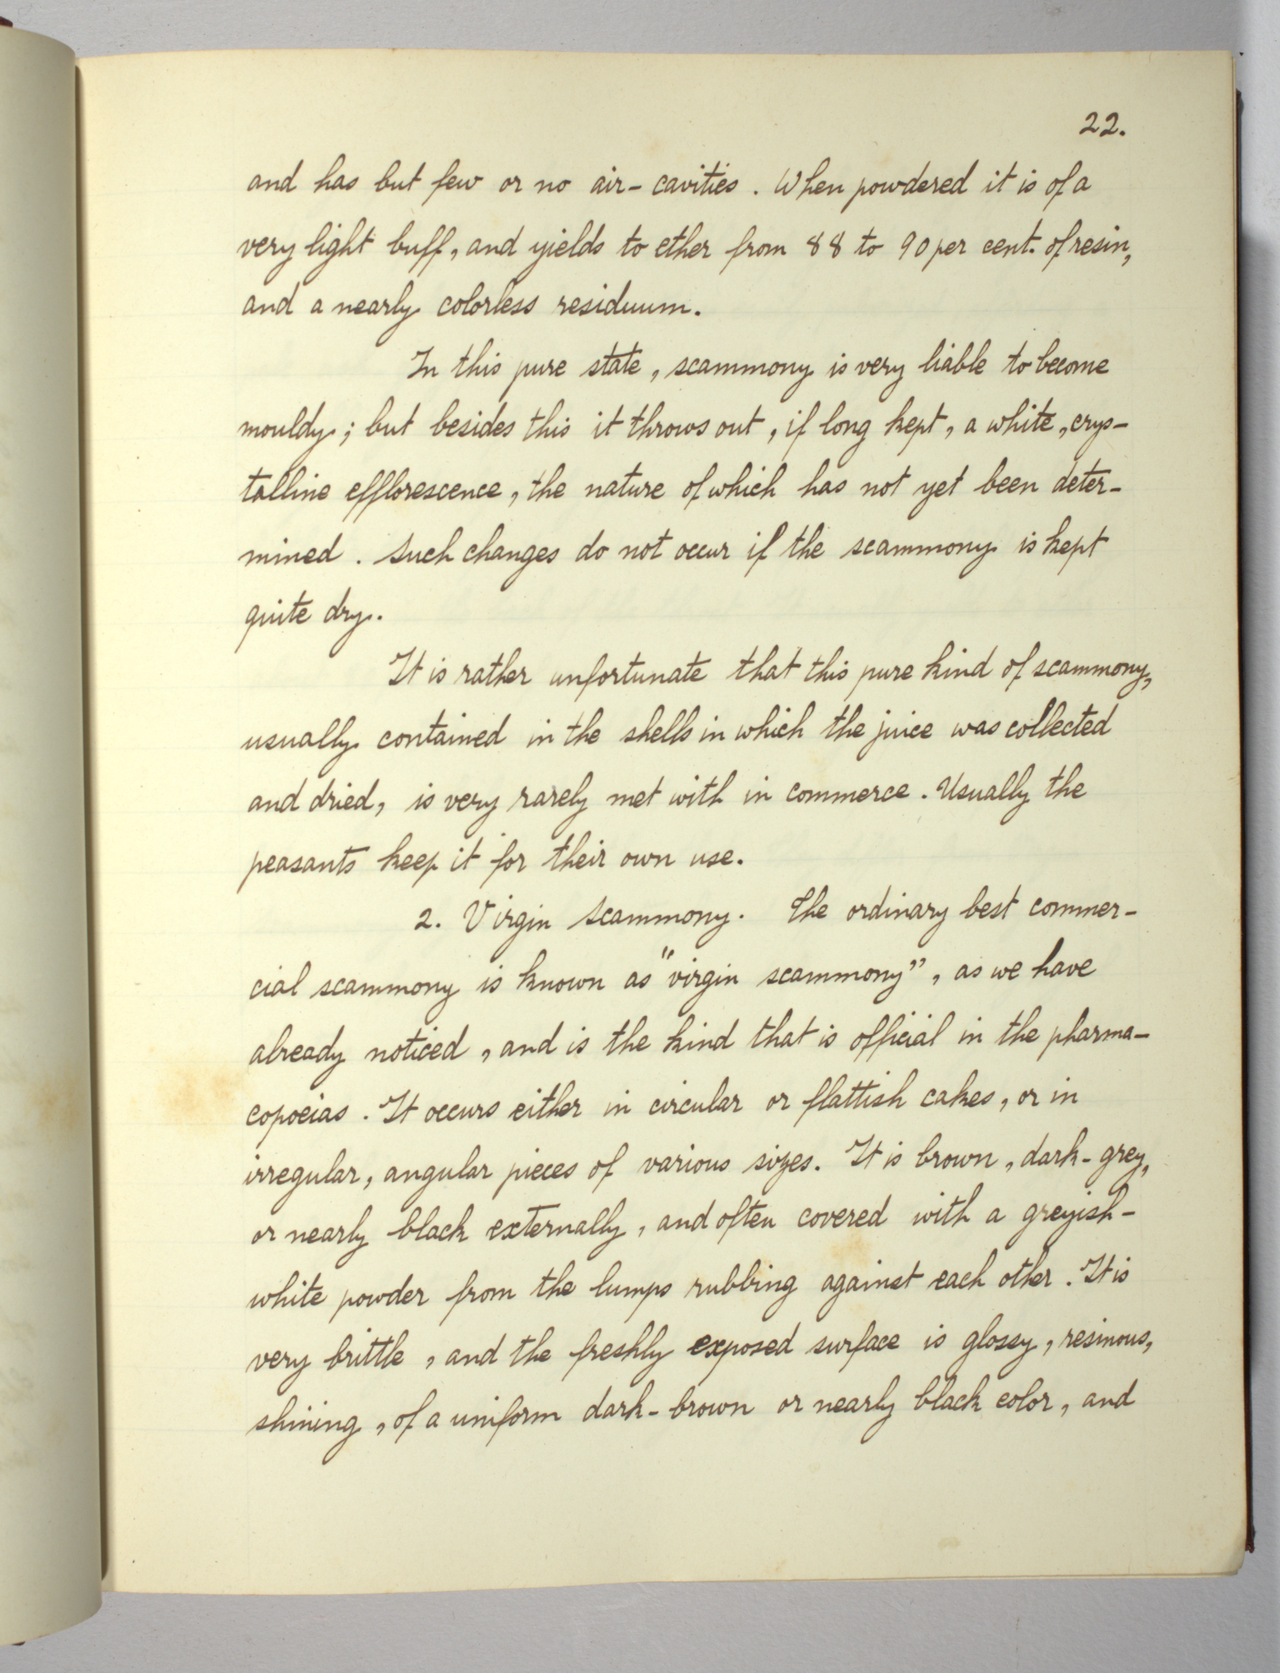 22.
and has but few or no air-cavities. When powdered it is of a
very light buff, and yields to ether from 88 to 90 per cent. of resin,
and a nearly colorless residuum.
In this pure state, scammony is very liable to become
mouldy; but besides this it throws out, if long kept, a white, crys-
talline efflorescence, the nature of which has not yet been deter-
mined. Such changes do not occur if the scammony is kept
quite dry.
It is rather unfortunate that this pure kind of scammony,
usually contained in the shells in which the juice was collected
and dried, is very rarely met with in commerce. Usually the
peasants keep it for their own use.
2. Virgin Scammony. The ordinary best commer-
cial scammony is known as "virgin scammony", as we have
already noticed, and is the kind that is official in the pharma-
copoeias. It occurs either in circular or flattish cakes, or in
irregular, angular pieces of various sizes. It is brown, dark-grey,
or nearly black externally, and often covered with a greyish-
white powder from the lumps rubbing against each other. It is
very brittle, and the freshly exposed surface is glossy, resinous,
shining, of a uniform dark-brown or nearly black color, and